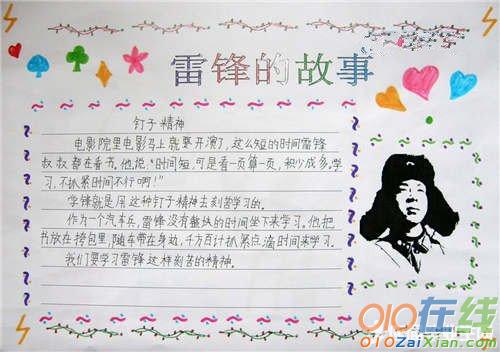 雷锋的故事
钉子精神
电影院里电影马上就要开演了,这么短的时间雷锋
叔叔都在看书。他说:“时间短,可是看一页算一页,积少成多。学
习,不抓紧时间不行啊!”
学锋就是用这种钉子精神去刻苦学习的。
作为一个汽车兵,雷锋没有整块的时间坐下来学习。他把
书放在挎包里,随车带在身边,千方百计抓紧点滴时间来学习。
我们要学习雷锋这样刻苦的精神。
010在线
010ZaiXian.com